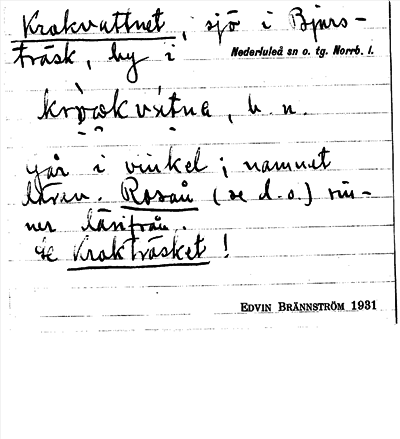 Krokvattnet, sjö i Bjurs-
träsk, by i Nederluleå sn o. tg. Norrb. l.
går i vinkel; namnet
även. Rosån (se d.o.) rin-
ner därifrån.
Se Kroktrāsket!
EDVIN BRÄNNSTRÖM 1931